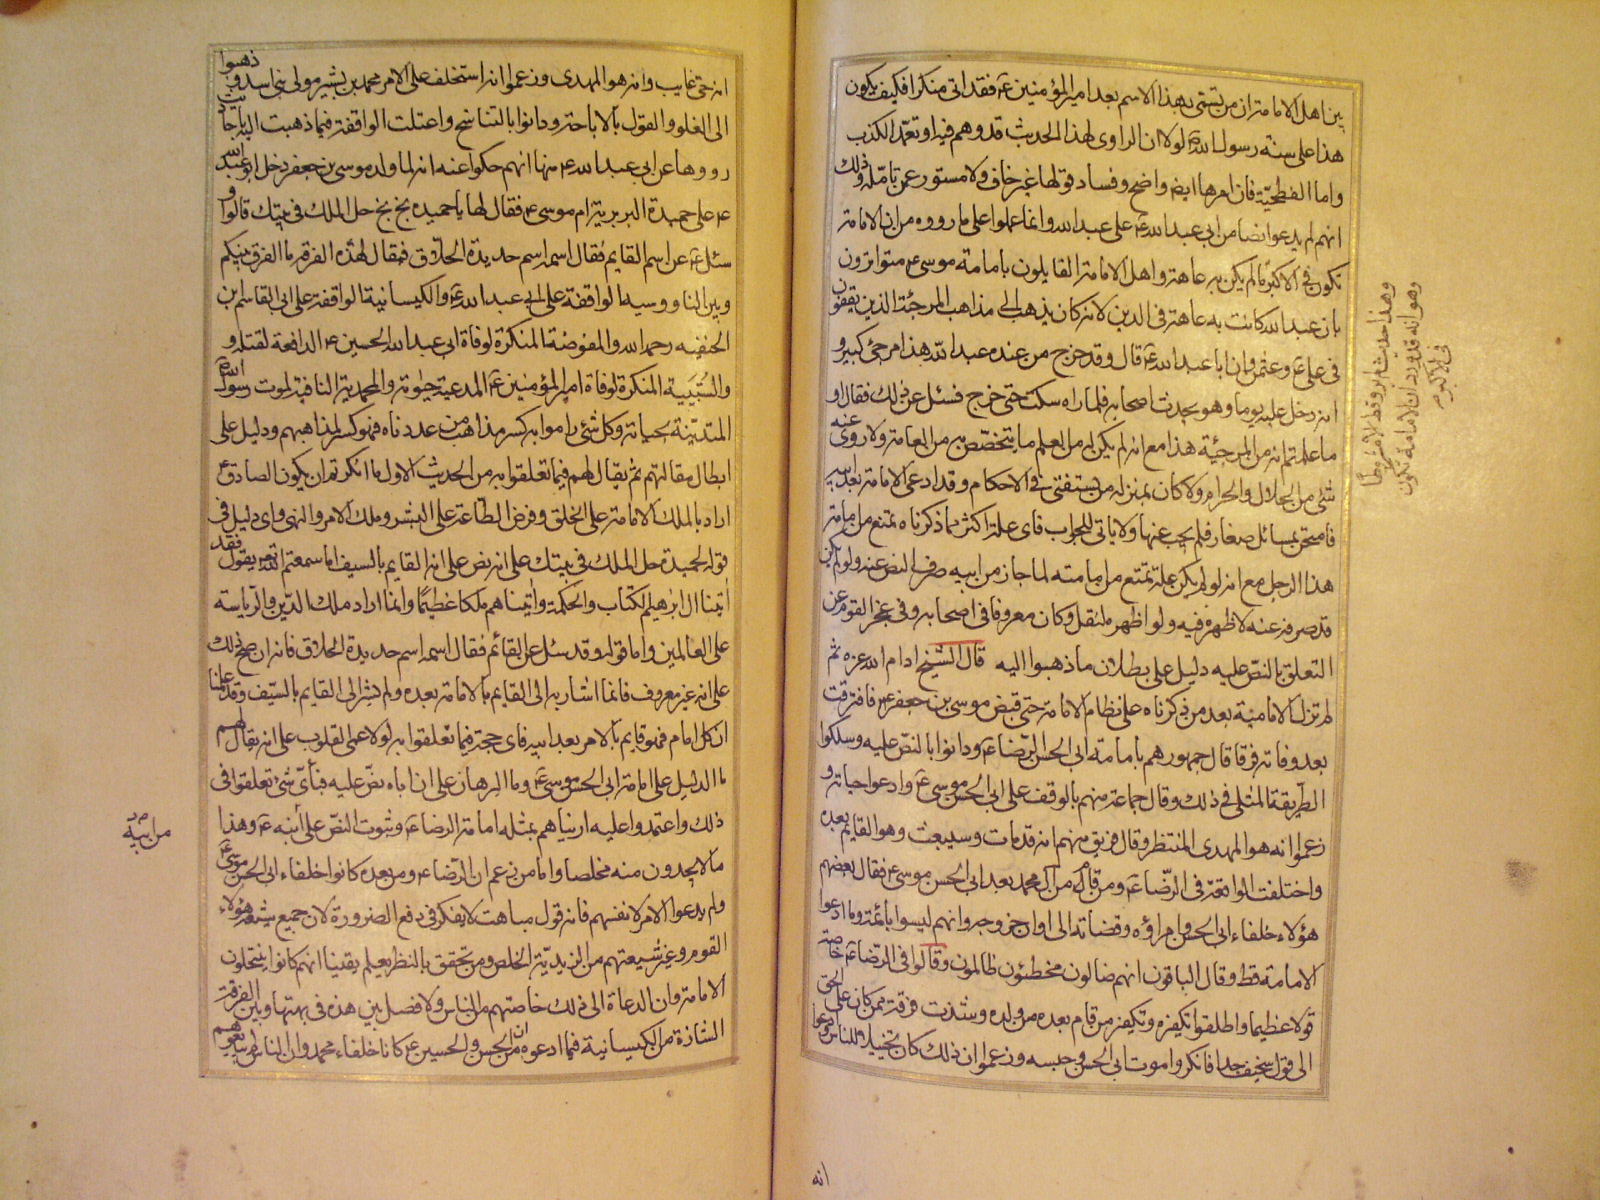 بين اهل الامامة ان من تسمى بهذا الاسم بعد امير المؤمنين ع فقد اتى منكرا فكيف يكون
هذا على سنة رسول الله ص لولا ان الراوى لهذا الحديث قد وهم فيه او تعمد الكذب
واما الفطحية فان امرها ايضا واضح وفساد قولها غير خاف ولا مستور عمن تامله وذلك
انهم لم يدعوا نصا من ابى عبد الله ع على عبد الله وانما عملوا على ما رووه من ان الامامة
تكون فى الاكبر ما لم يكن به عاهة واهل الامامة القايلون بامامة موسى ع متواترون
بان عبد الله كانت به عاهة فى الدين لانه كان يذهب الى مذاهب المرجئة الذين يقفون
فى على ع وعثمن وان ابا عبد الله ع قال وقد خرج من عنده عبد الله هذا مرجئ كبير و
انه دخل عليه يوما وهو يحدث اصحابه فلما راه سكت حتى خرج فسئل عن ذلك فقال او
ما علمتم انه من المرجئة هذا مع انه لم يكن له من العلم ما يتخصص به من العامة ولا روى عنه
شئ من الحلال والحرام ولا كان بمنزلة من يستفتى فى الاحكام وقد ادعى الامامة بعد ابيه
فامتحن بمسائل صغار فلم يجب عنها ولا ياتى للجواب فاى علة اكثر مما ذكرناه تمنع من امامة
هذا الرجل مع انه لو لم يكن علة تمنع من امامته لما جاز من ابيه صرف النص عنه ولو لم يكن
قد صرفه عنه لاظهره فيه ولو اظهره لنقل وكان معروفا فى اصحابه وفى عجز القوم عن
التعلق بالنص عليه دليل على بطلان ما ذهبوا اليه قال الشيخ ادام الله عزه ثم
لم تزل الامامية بعد من ذكرناه على نظام الامامة حتى قبض موسى بن جعفر ع فافترقت
بعد وفاته فرقا قال جمهورهم بامامة ابى الحسن الرضا ع ودانوا بالنص عليه وسلكوا
الطريقة المثلى فى ذلك وقال جماعة منهم بالوقف على ابى الحسن موسى ع وادعوا حياته و
زعموا انه هو المهدى المنتظر وقال فريق منهم انه قد مات وسيبعث وهو القايم بعده
واختلفت الواقفة فى الرضا ع ومن قام من ال محمد بعد ابى الحسن موسى ع فقال بعضهم
هؤلاء خلفاء ابى الحسن وامراؤه وقضاته الى اوان خروجه وانهم ليسوا بائمة وما ادعوا
الامامة قط وقال الباقون انهم ضالون مخطئون ظالمون وقالوا فى الرضا ع خاصة
قولا عظيما واطلقوا تكفيره وتكفير من قام بعده من ولده وشذت فرقة ممن كان على الحق
الى قول سخيف جدا فانكروا موت ابى الحسن وحبسه وزعموا ان ذلك كان تخييلا للناس وادعوا
وهذا حديث لم يرو قط الا مشروطا
وهو انه قد ورد ان الامامة تكون
فى الاكبر
انه
انه حى غايب وانه هو المهدى وزعموا انه استخلف على الامر محمد بن بشير مولى بنى اسد وذهبوا
الى الغلو والقول بالاباحة ودانوا بالتناسخ واعتلت الواقفة فيما ذهبت اليه باحاديث
رووها عن ابى عبد الله ع منها انهم حكوا عنه انه لما ولد موسى بن جعفر دخل ابو عبد الله
ع على حميدة البربرية ام موسى ع فقال لها يا حميدة بخ بخ حل الملك فى بيتك قالوا و
سئل ع عن اسم القايم فقال اسمه اسم حديدة الحلاق فيقال لهذه الفرقة ما الفرق بينكم
وبين الناووسية الواقفة على ابى عبد الله ع والكيسانية الواقفة على ابى القاسم بن
الحنفيه رحمه الله والمفوضة المنكرة لوفاة ابى عبد الله الحسين ع الدافعة لقتله و
والسبيية المنكرة لوفاة امير المؤمنين ع المدعية حيوته والمحمدية النافية لموت رسول الله ص
المتدينة بحياته وكل شئ راموا به كسر مذاهب من عددناه فهو كسر لمذاهبهم ودليل على
ابطال مقالتهم ثم يقال لهم فيما تعلقوا به من الحديث الاول ما انكرتم ان يكون الصادق ع
اراد بالملك الامامة على الخلق وفرض الطاعة على البشر وملك الامر والنهى واى دليل فى
قوله لحميدة حل الملك فى بيتك على انه نص على انه القايم بالسيف اما سمعتم الله تعالى يقول فقد
اتينا ال ابرهيم الكتاب والحكمة واتيناهم ملكا عظيما وانما اراد ملك الدين والرياسة
على العالمين واما قوله وقد سئل عن القائم فقال اسمه اسم حديدة الحلاق فانه ان صح ذلك
على انه غير معروف فانما اشار به الى القايم بالامامة بعده ولم يشر الى القايم بالسيف وقد علمنا
ان كل امام فهو قايم بالامر بعد ابيه فاى حجة فيما تعلقوا به لولا عمى القلوب على انه يقال لهم
ما الدليل على امامة ابى الحسن موسى ع وما البرهان على ان اباه نص عليه فبأى شئ تعلقوا فى
ذلك واعتمدوا عليه اريناهم بمثله امامة الرضا ع وثبوت النص على ابنه ع وهذا
ما لا يجدون منه مخلصا واما من زعم ان الرضا ع ومن بعده كانوا خلفاء ابى الحسن موسى ع
ولم يدعوا الامر لانفسهم فانه قول مباهت لا يفكر فى دفع الضرورة لان جميع شيعة هؤلاء
القوم وغير شيعتهم من الزيدية الخلص ومن تحقق بالنظر يعلم يقينا انهم كانوا ينتحلون
الامامة وان الدعاة الى ذلك خاصتهم من الناس ولا فصل بين هذه فى بهتها وبين الفرقة
الشاذة من الكيسانية فيما ادعوه من ان الحسن والحسين ع كانا خلفاء محمد وان الناس لم يبايعوهم
من ابيه